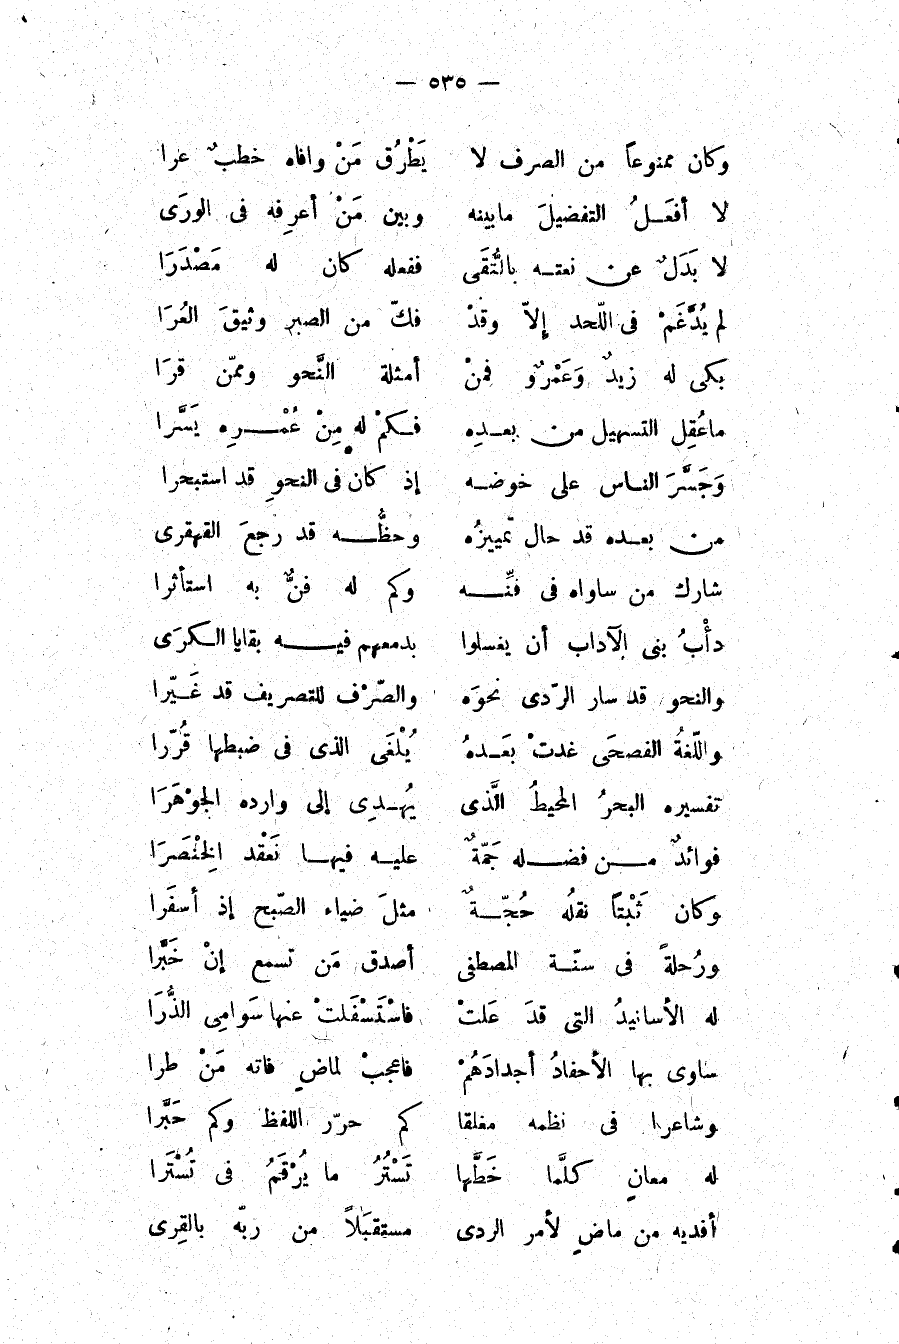 — ٥٣٥ —
وكان ممنوعاً من الصرف لا يَطْرُق مَنْ وافاه خطبٌ عرا
لا أفعَـلُ التفضيلَ مابينه وبين مَنْ أعرِفه فى الورَى
لا بَدَلٌ عن نعتـه بالتُّقَى ففعله كان له مَصْدَرَا
لم يُدَّغَمْ فى اللّحد إلاّ وقدْ فكّ من الصبرِ وثيقَ العُرَا
بكى له زيدٌ وَعَمْرٌو فمنْ أمثلة النَّحو وممّن قرَا
ماعُقِل التسهيل من بعـدِه فـكمْ له مِنْ عُمْـرِه يَسَّرا
وَجَسَّرَ النـاس على خوضـه إذ كان فى النحوِ قد استبحرا
من بعـده قد حال تمييزُه وحظُّـه قد رجعَ القهقرى
شارك من ساواه فى فنِّـه وكم له فنٌّ به استأثرا
دأْبُ بنى الآداب أن يغسلوا بدمعهم فيـه بقايا الـكرَى
والنحو قد سار الرّدى نحوَه والصّرْف للتصريف قد غَـيّرا
واللّغةُ الفصحَى غدتْ بعَـدهُ يُلْغَى الذى فى ضبطها قُرّرا
تفسيره البحرُ المحيطُ الَّذى يُهـدِى إلى وارده الجوْهَرَا
فوائدٌ مـن فضـله جَمّةٌ عليـه فيهـا نَعْقد الِخْنْصَرَا
وكان ثَبْتاً نقلُه حُجّـةٌ مثلَ ضياء الصّبح إذ أسفَرا
ورُحلةً فى سنّـة المصطفى أصدق مَن تسمع إنْ خَبَّرا
له الأسانيدُ التى قدَ عَلتْ فاسْتَسْفَلتْ عنها سَوامِى الذُّرَا
ساوى بها الأحفادُ أجدادَهُمْ فاعجبْ لماضٍ فاته مَنْ طرا
وشاعرا فى نظمه مغلقا كم حرّر اللفظ وكم حَبَّرا
له معانٍ كلَّما خَطَّها تَسْتُرُ ما يُرْقَمُ فى تُسْتَرا
أفديه من ماضٍ لأمر الردى مستقبَلاً من ربّه بالقِرى